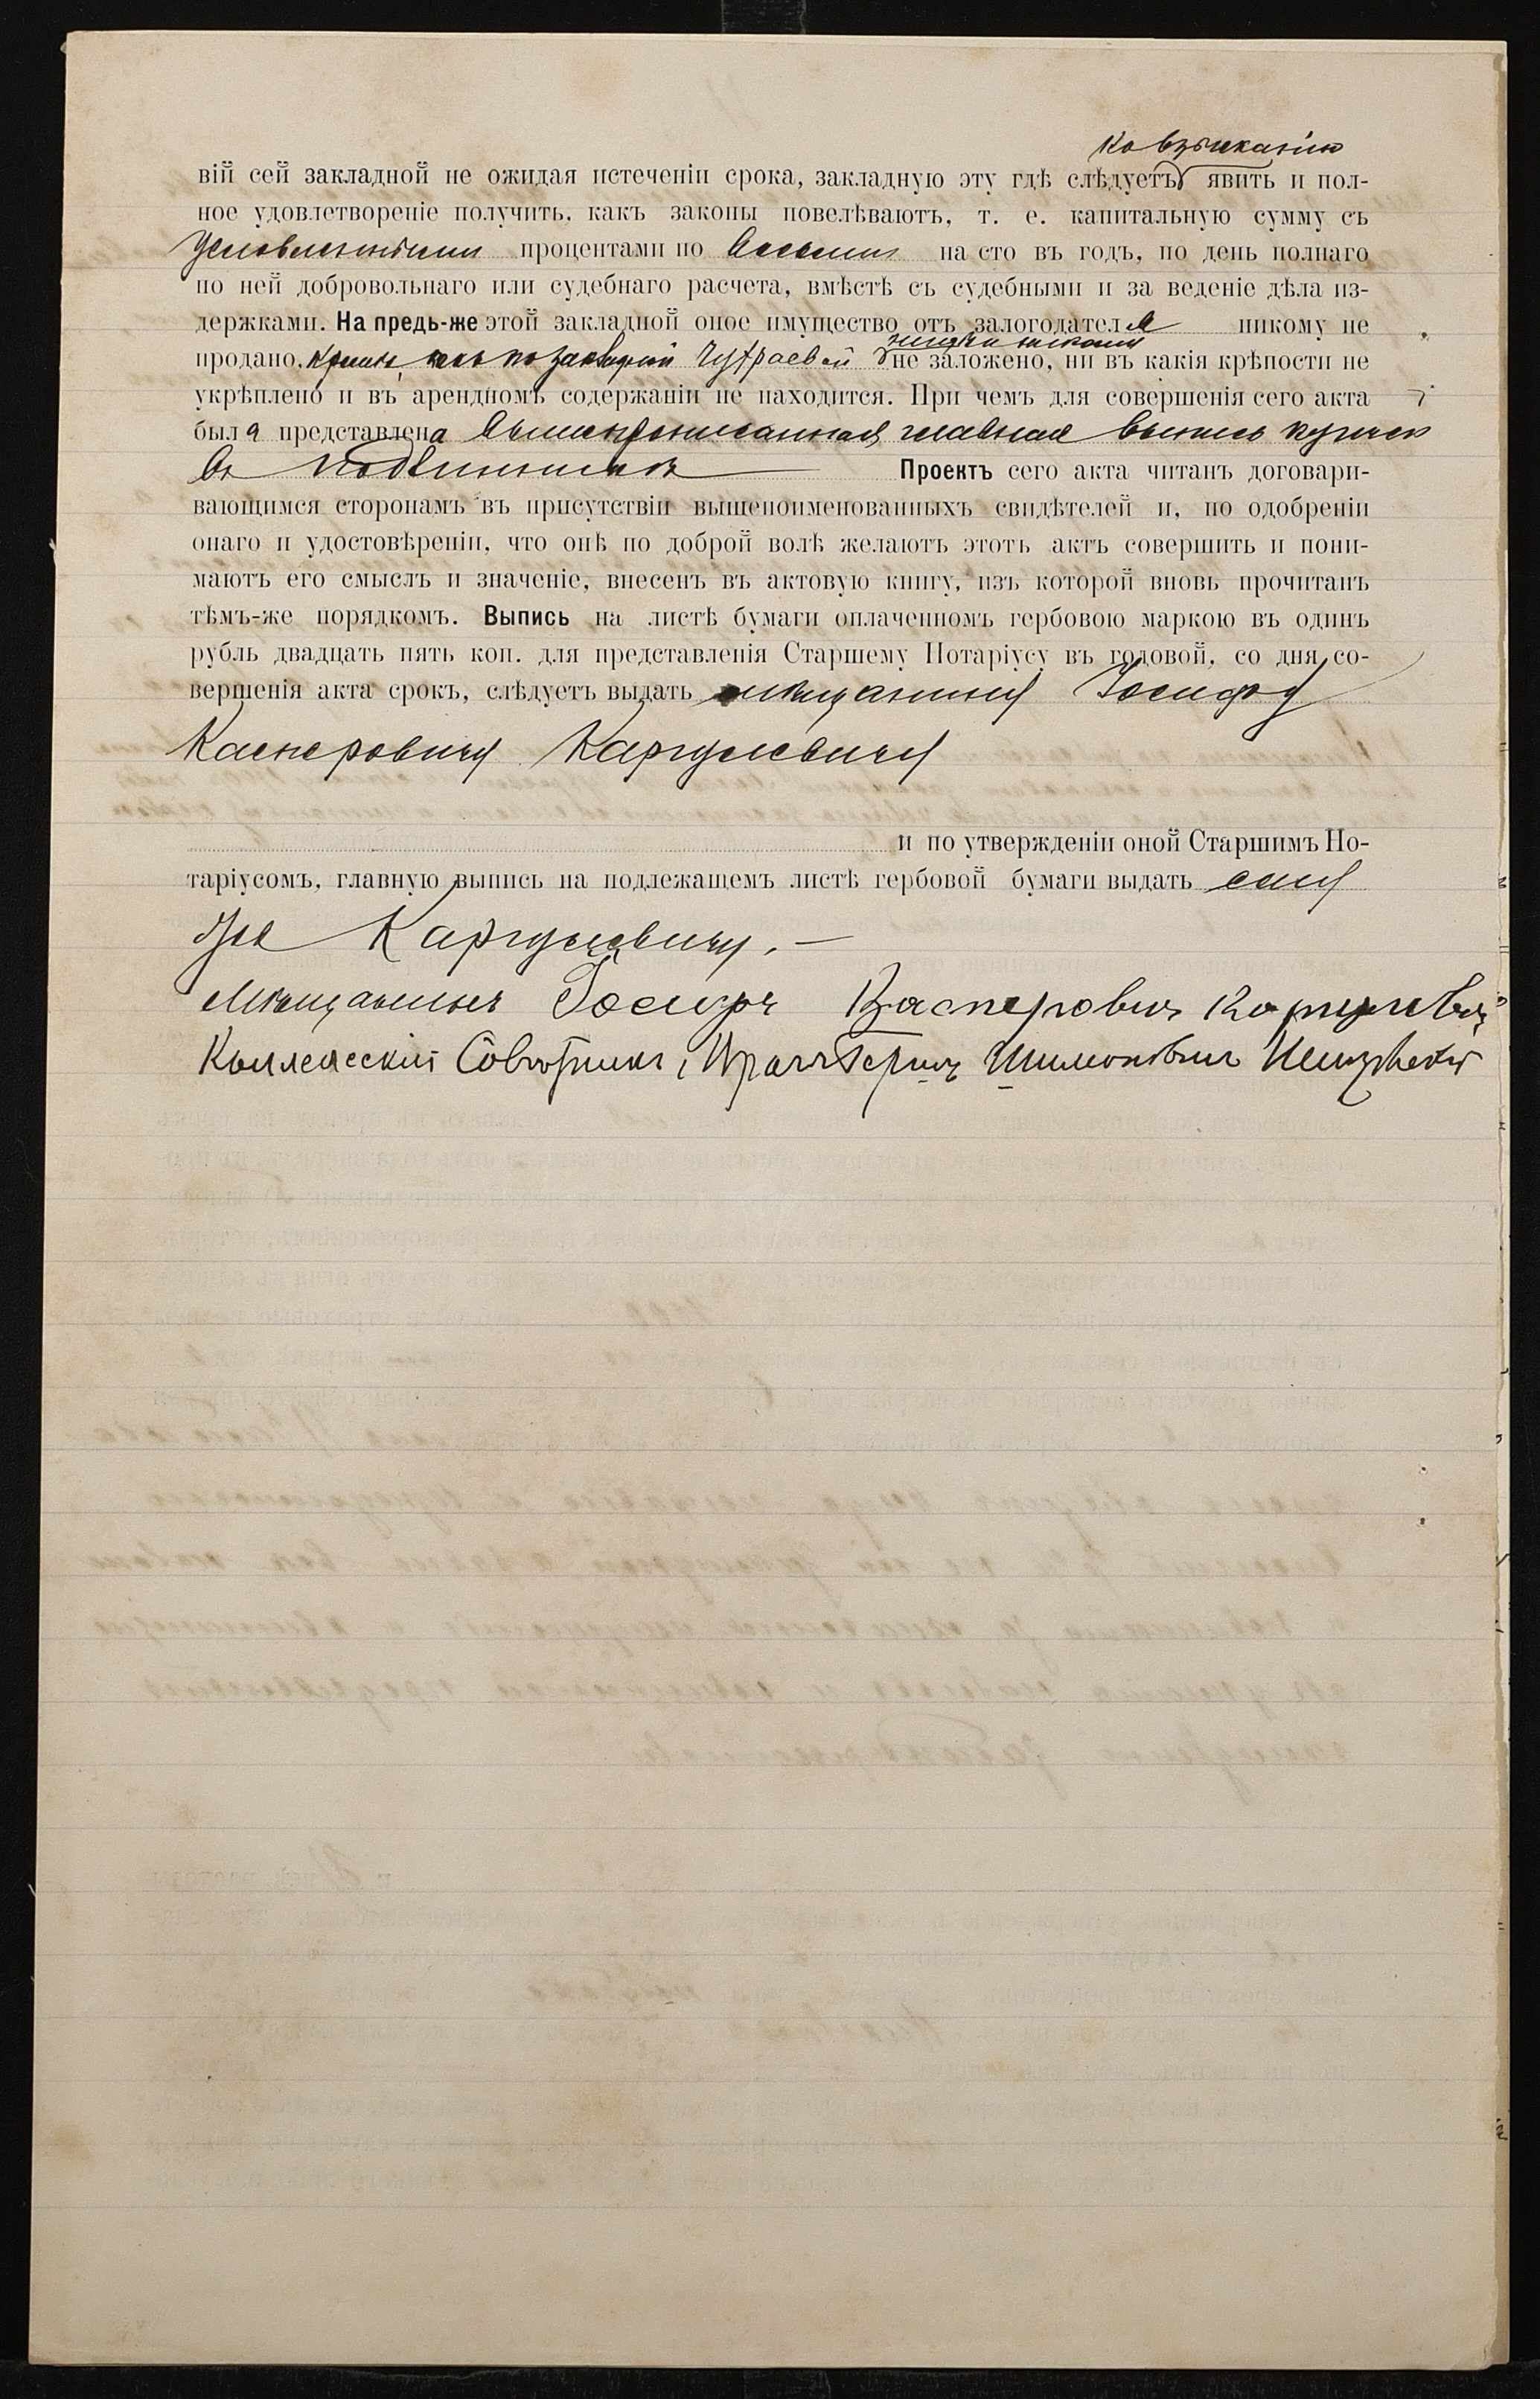 ко взысканію
вій сей закладной не ожидая истеченіи срока, закладную эту гдѣ слѣдуетъ явить и пол-
ное удовлетвореніе получить, какъ законы повелѣваютъ, т. е. капитальную сумму съ
условленными процентами по восьми на сто въ годъ, по день полнаго
по ней добровольнаго или судебнаго расчета, вмѣстѣ съ судебными и за веденіе дѣла из-
держками. На предь-же этой закладной оное имущество отъ залогодателя никому не
продано, кромѣ, какъ по никому не заложено, ни въ какія крѣпости не
укрѣплено и въ арендномъ содержаніи не находится. При чемъ для совершенія сего акта
была представлена вышепрописанная главная выпись купчей
въ подлинникѣ Проектъ сего акта читанъ договари-
вающимся сторонамъ въ присутствіи вышепоименованныхъ свидѣтелей и, по одобреніи
онаго и удостовѣреніи, что онѣ по доброй волѣ желаютъ этотъ актъ совершить и пони-
маютъ его смыслъ и значеніе, внесенъ въ актовую книгу, изъ которой вновь прочитанъ
тѣмъ-же порядкомъ. Выпись на листѣ бумаги оплаченномъ гербовою маркою въ одинъ
рубль двадцать пять коп. для представленія Старшему Нотаріусу въ годовой, со дня со-
вершенія акта срокъ, слѣдуетъ выдать мѣщанину Іосифу
Касперовичу Каргулевичу
и по утвержденіи оной Старшимъ Но-
таріусомъ, главную выпись на подлежащемъ листѣ гербовой бумаги выдать ему
же Каргулевичу. —
Мѣщанинъ Іосифъ Касперовичъ Каргулевичъ
Коллежскій Совѣтникъ, Врачъ Герцъ Шимоновичъ